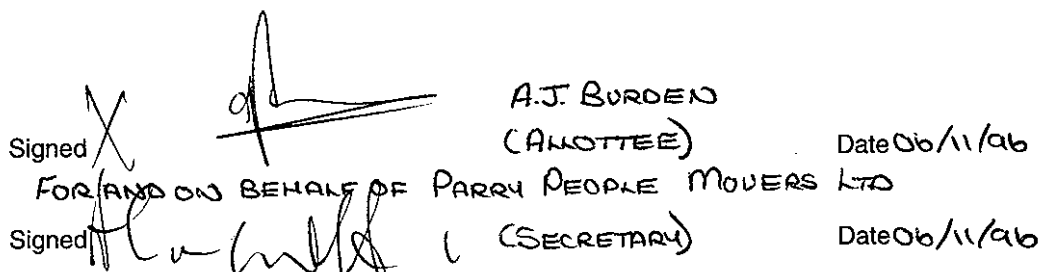 A.J. BURDEN
Signed X (ALLOTTEE) Date 06/11/96
FOR AND ON BEHALF OF PARRY PEOPLE MOVERS LTD
Signed (SECRETARY) Date 06/11/96